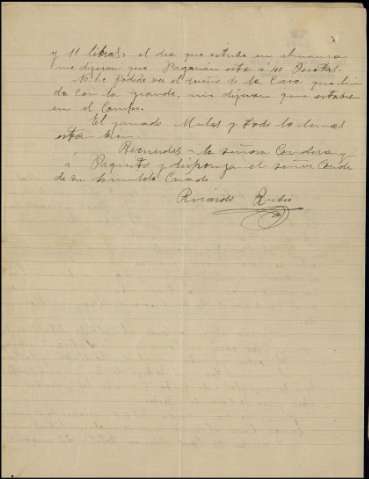 y 11 libras el dia que estube en Almansa
me dijeron que Pagarian esta á 10 Pesetas.
No he podido ver el dueño de la Casa que lin
da con la grande, me dijeron que estaba
en el Campo.
El ganado Mulas y todo lo demas
esta bien
Recuerdos a la señora Condesa y
a Paquito y disponga el señor Conde
de su humilde Criado
Ricardo Rubio